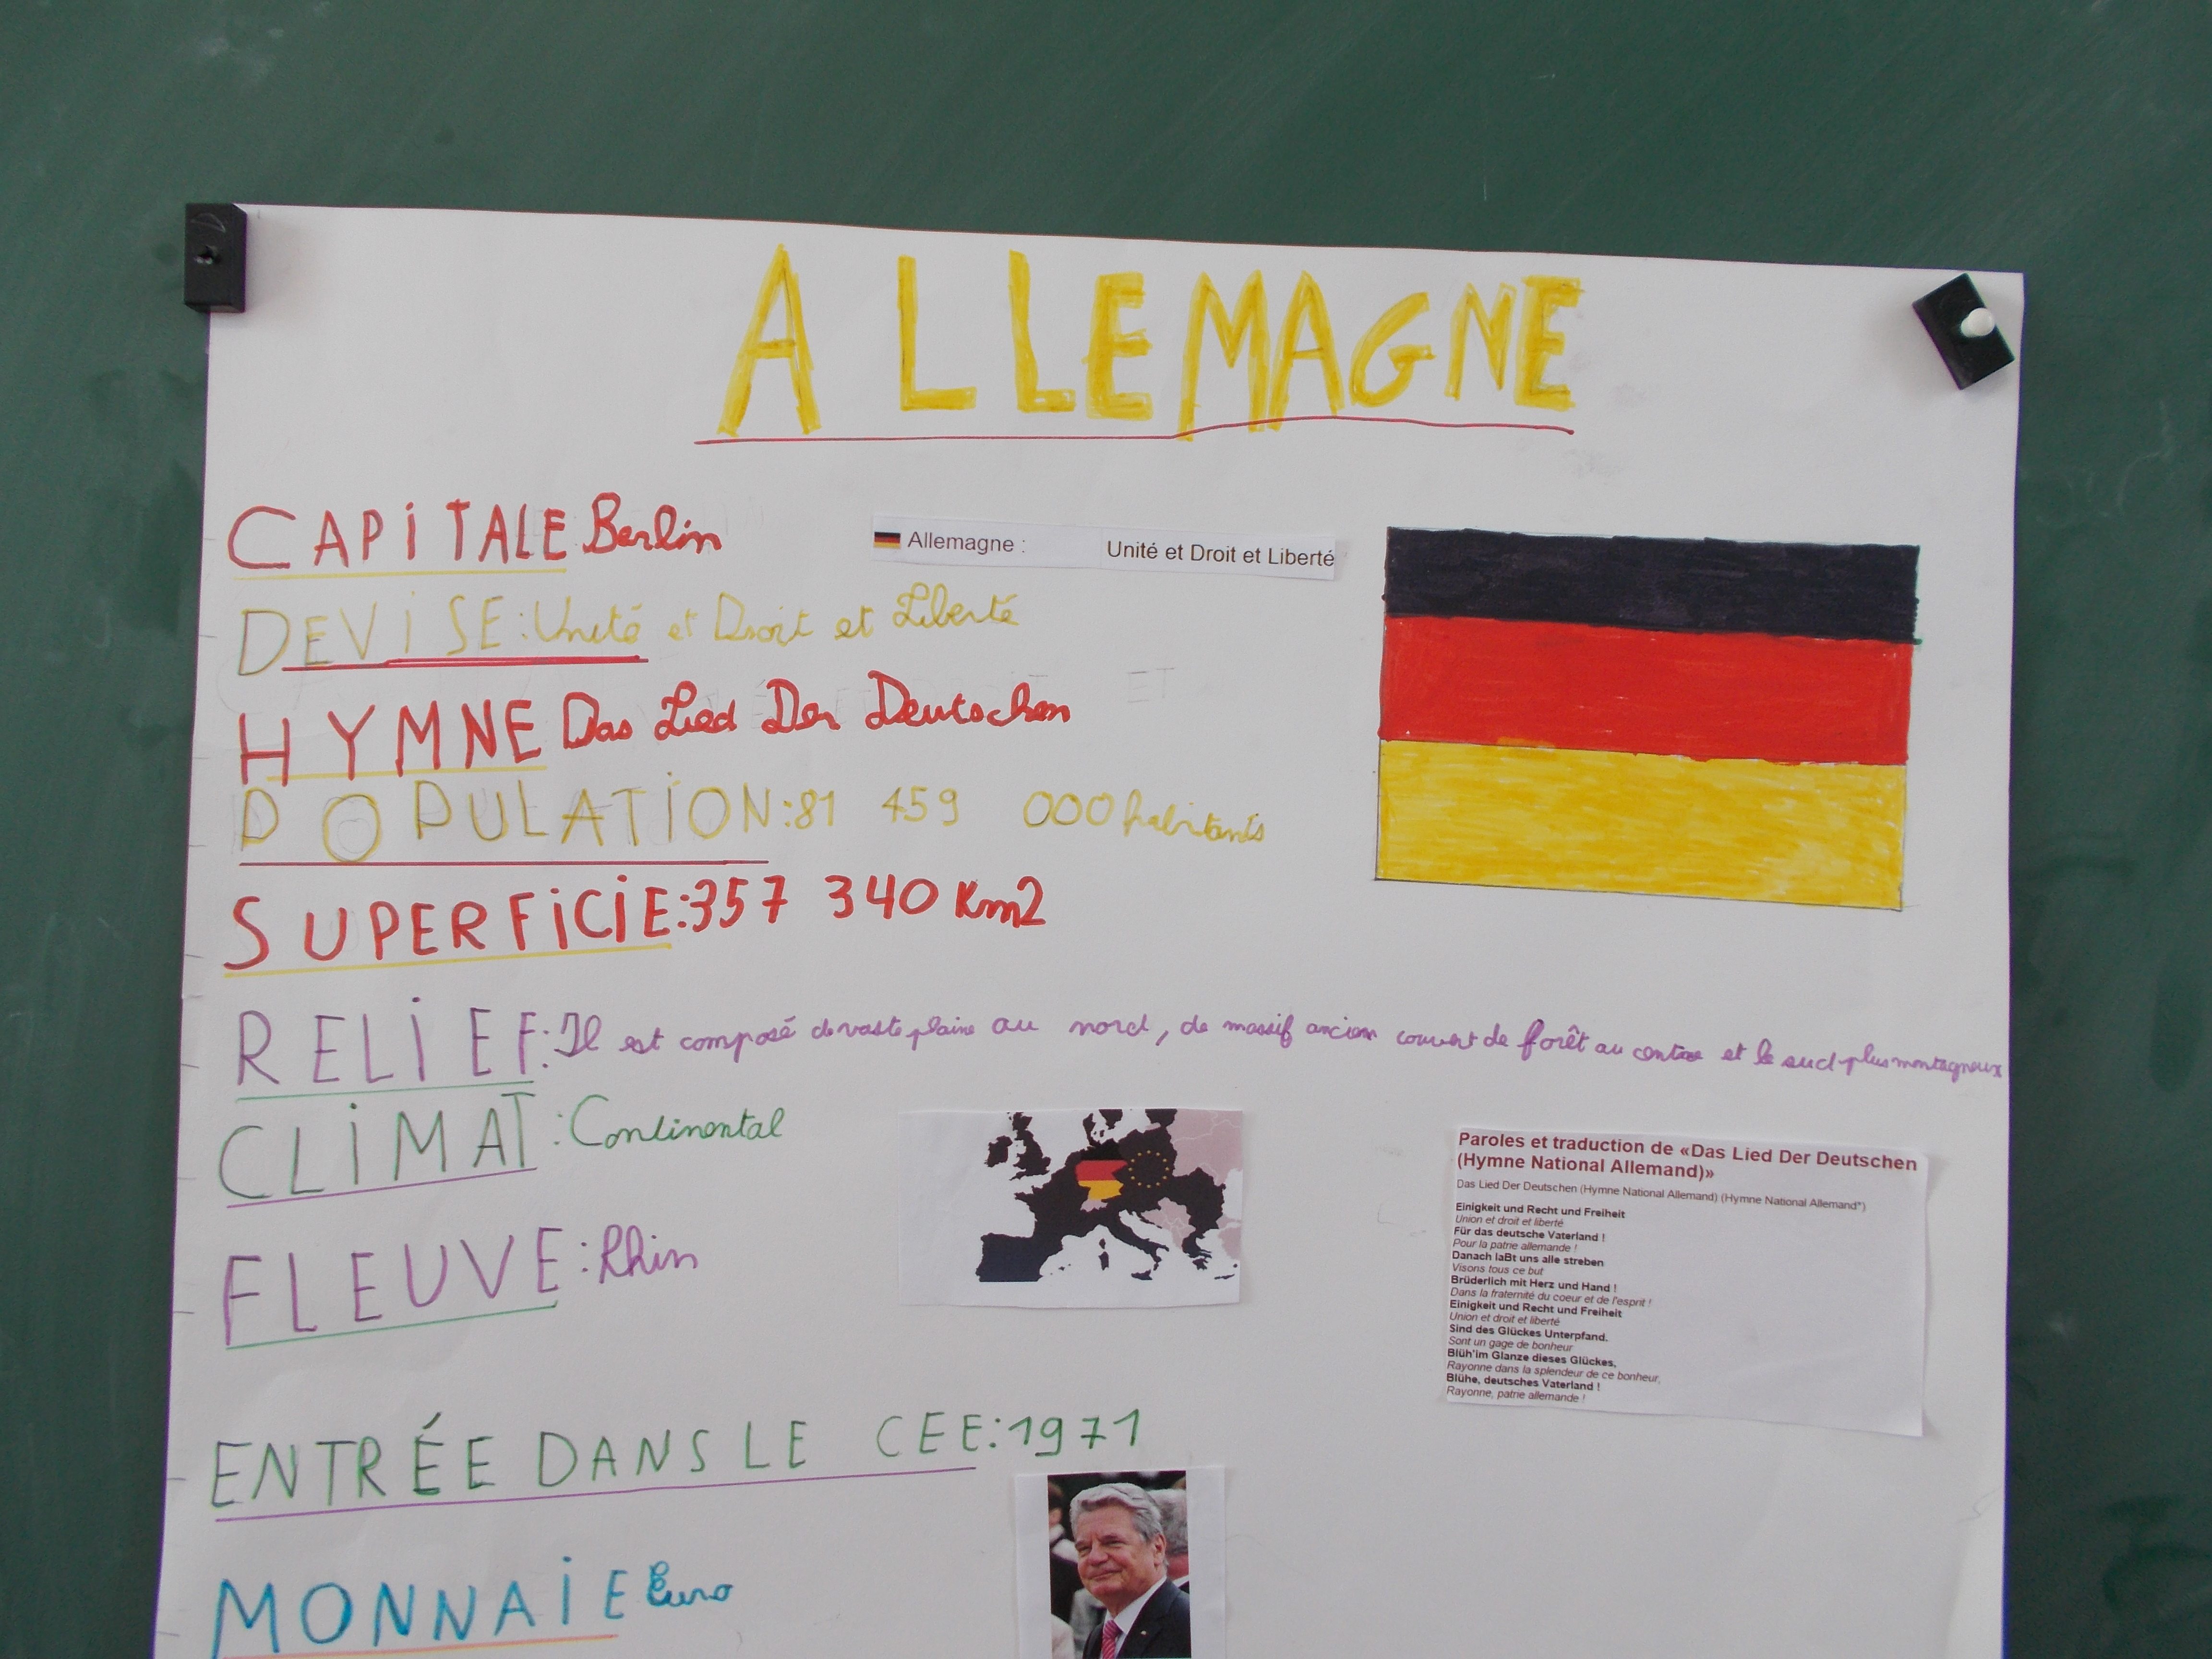 ALLEMAGNE
CAPITALE Berlin
Allemagne : Unité et Droit et Liberté
DEVISE: Unité et Droit et Liberté
HYMNE Das Lied Der Deutschen
ET
POPULATION: 81 459 000 habitants
SUPERFICIE: 357 340 Km2
RELIEF: Il est composé de vaste plaine au nord, de massif ancien couvert de forêt au centre et le sud plus montagneux
CLIMAT: Continental
FLEUVE: Rhin
Paroles et traduction de «Das Lied Der Deutschen
(Hymne National Allemand)»
Das Lied Der Deutschen (Hymne National Allemand) (Hymne National Allemand*)
Einigkeit und Recht und Freiheit
Union et droit et liberté
Für das deutsche Vaterland !
Pour la patrie allemande !
Danach laBt uns alle streben
Visons tous ce but
Brüderlich mit Herz und Hand !
Dans la fraternité du coeur et de l'esprit !
Einigkeit und Recht und Freiheit
Union et droit et liberté
Sind des Glückes Unterpfand.
Sont un gage de bonheur
Blüh'im Glanze dieses Glückes,
Rayonne dans la splendeur de ce bonheur,
Blühe, deutsches Vaterland !
Rayonne, patrie allemande !
ENTRÉE DANS LE CEE: 1971
MONNAIE Euro